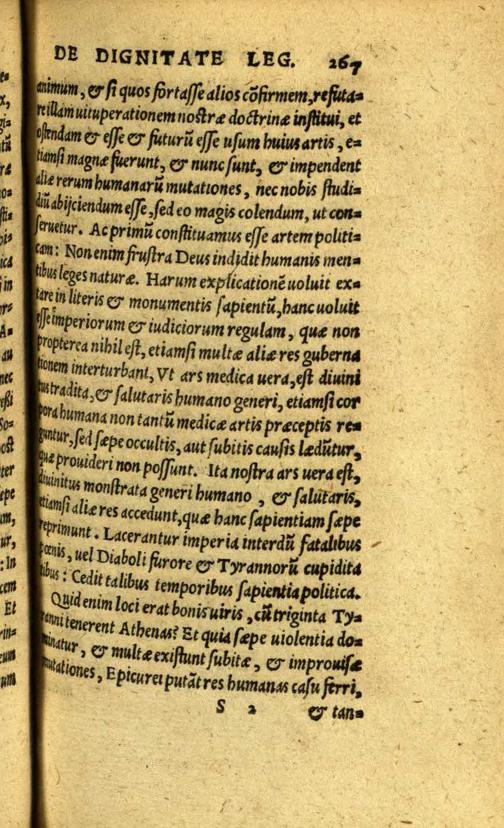 DE DIGNITATE LEG. 267
animum, & si quos fortasse alios cõfirmem, refuta=
re illam uituperationem nostræ doctrinæ institui, et
ostendam & esse & futurũ esse usum huius artis, e=
tiamsi magnæ fuerunt, & nunc sunt, & impendent
aliæ rerum humanarũ mutationes, nec nobis studi=
diũ abijciendum esse, sed eo magis colendum, ut con=
seruetur. Ac primũ constituamus esse artem politi=
cam: Non enim frustra Deus indidit humanis men=
tibus leges naturæ. Harum explicationẽ uoluit ex=
tare in literis & monumentis sapientũ, hanc uoluit
esse imperiorum & iudiciorum regulam, quæ non
propterea nihil est, etiamsi multæ aliæ res guberna
tionem interturbant, Vt ars medica uera, est diuini
tus tradita, & salutaris humano generi, etiamsi cor
pora humana non tantũ medicæ artis præceptis re=
guntur, sed sæpe occultis, aut subitis causis lædũtur,
quæ prouideri non possunt. Ita nostra ars uera est,
diuinitus monstrata generi humano, & salutaris,
etiamsi aliæ res accedunt, quæ hanc sapientiam sæpe
reprimunt. Lacerantur imperia interdũ fatalibus
pœnis, uel Diaboli furore & Tyrannorũ cupidita
tibus: Cedit talibus temporibus sapientia politica.
Quid enim loci erat bonis uiris, cũ triginta Ty=
ranni tenerent Athenas? Et quia sæpe uiolentia do=
minatur, & multæ existunt subitæ, & improuisæ
mutationes, Epicurei putãt res humanas casu ferri,
S 2 & tan=